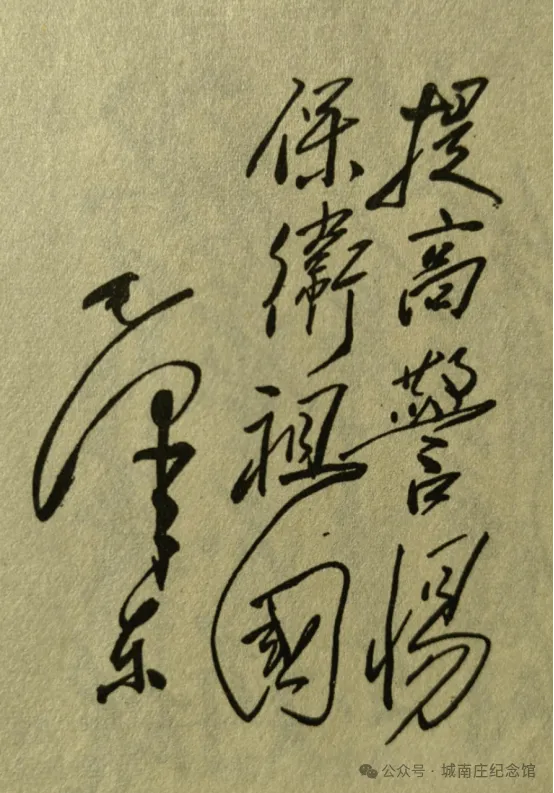 提高警惕
保衛祖國
毛泽东
公众号·城南庄纪念馆